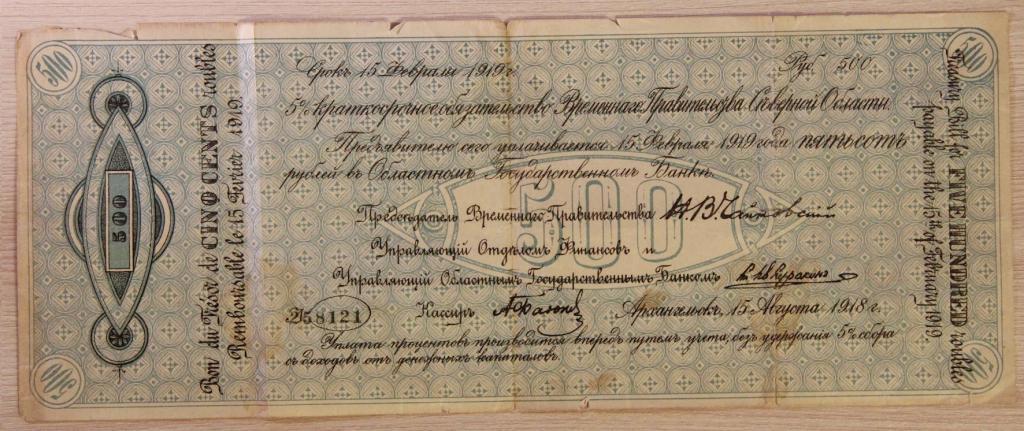 500
Bon du Trésor de CINQ CENTS roubles
Remboursable le 15 Fevrier 1919.
500
500
Срокъ 15 Февраля 1919 г.
Руб. 500
5% краткосрочное обязательство Временнаго Правительства Сѣверной Области.
Предъявителю сего уплачивается 15 Февраля 1919 года пятьсотъ
рублей въ Областномъ Государственномъ Банкѣ.
500
Предсѣдатель Временнаго Правительства Н. В. Чайковский
Управляющій Отдѣломъ Финансовъ и
Управляющій Областнымъ Государственнымъ Банкомъ
Кассиръ
Архангельскъ, 15 Августа 1918 г.
58121
Уплата процентовъ производится впередъ путемъ учета, безъ удержанія 5% сбора
съ доходовъ отъ денежныхъ капиталовъ.
500
Treasury Bill for FIVE HUNDRED roubles
payable on the 15th of February 1919
500